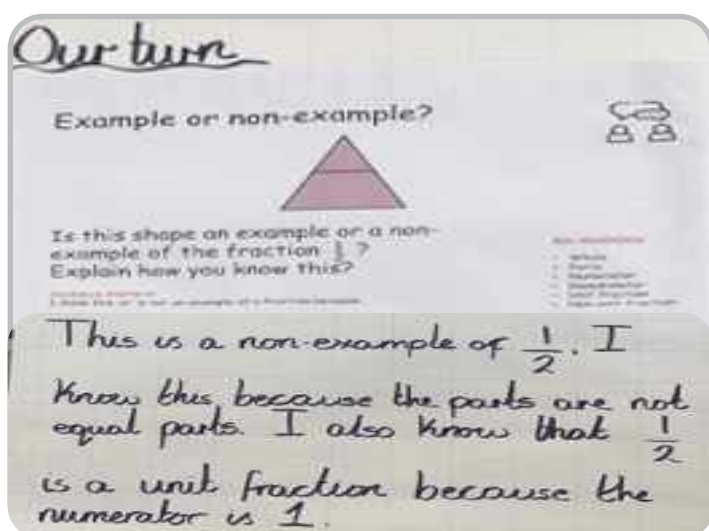 Our turn
Example or non-example?
Is this shape an example or a non-
example of the fraction 1/2 ?
Explain how you know this?
This is a non-example of 1/2. I
know this because the parts are not
equal parts. I also know that 1/2
is a unit fraction because the
numerator is 1.